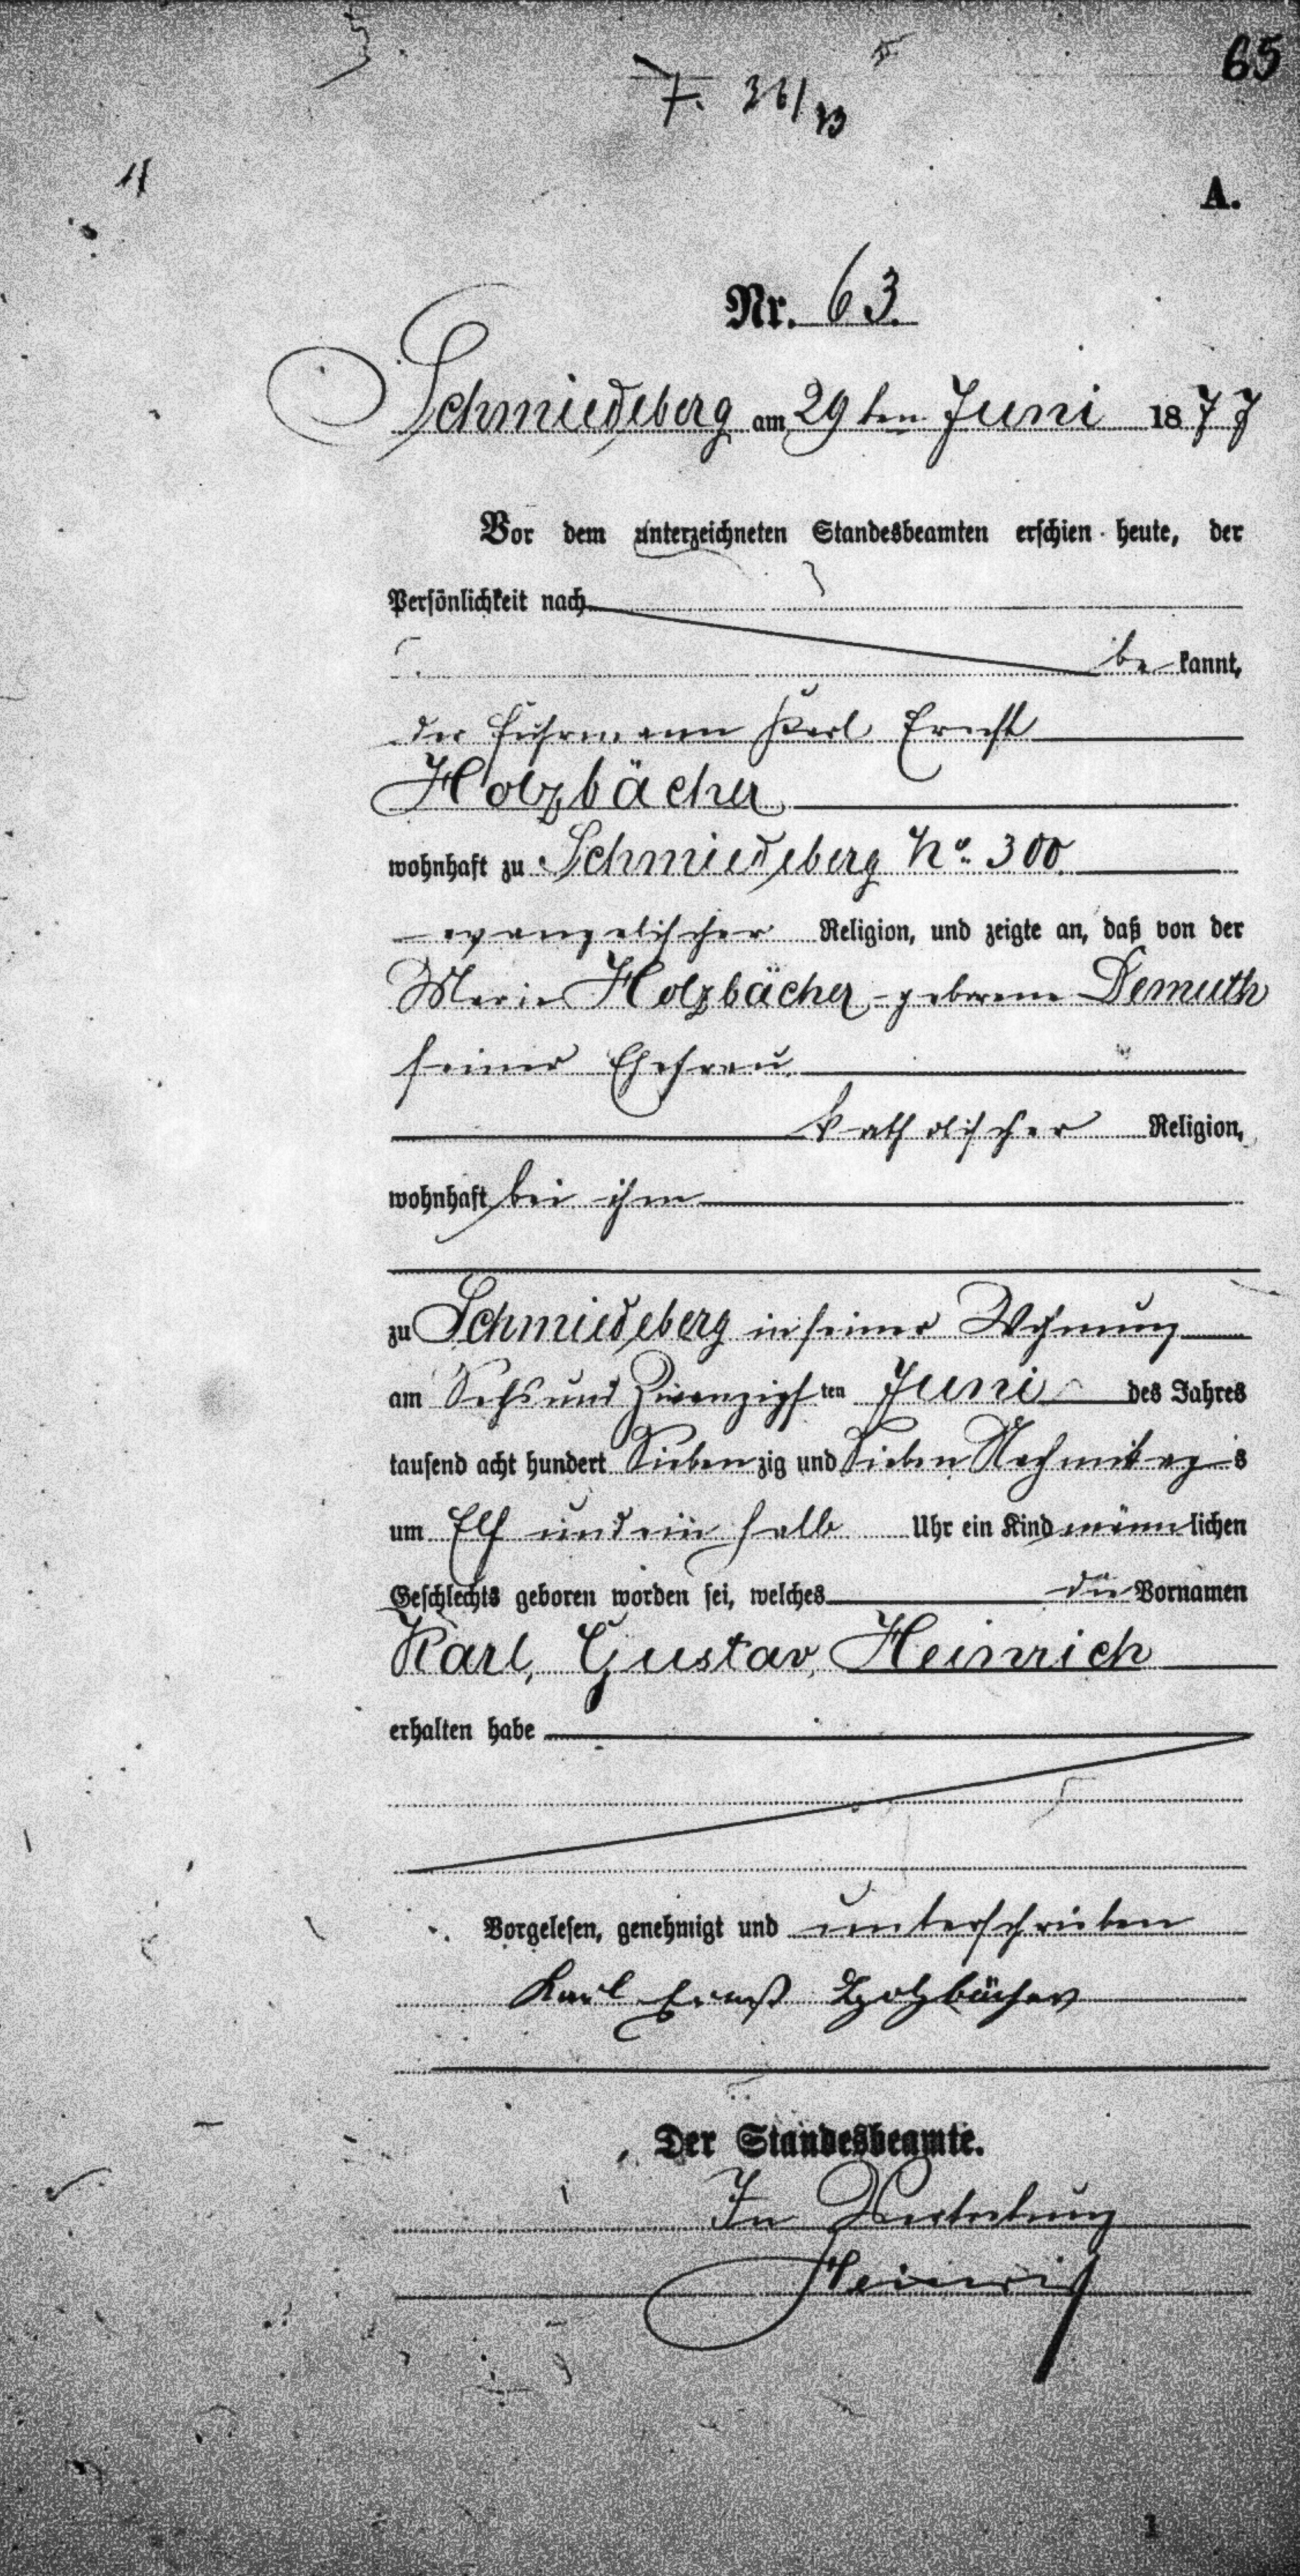 65
A.
Nr. 63.
Schmiedeberg am 29ten Juni 1877
Vor dem unterzeichneten Standesbeamten erschien heute, der
Persönlichkeit nach
be kannt,
der Fuhrmann Karl Ernst
Holzbächer
wohnhaft zu Schmiedeberg No. 300
evangelischer Religion, und zeigte an, daß von der
Marie Holzbächer geborene Demuth
seiner Ehefrau
katholischer Religion,
wohnhaft bei ihm
zu Schmiedeberg in seiner Wohnung
am Sechs und Zwanzigsten Juni des Jahres
tausend acht hundert Siebenzig und Sieben Nachmittags
um Elf und ein halb Uhr ein Kind männlichen
Geschlechts geboren worden sei, welches die Vornamen
Karl, Gustav, Heinrich
erhalten habe
Vorgelesen, genehmigt und unterschrieben
Karl Ernst Holzbächer
Der Standesbeamte.
In Vertretung
Heinrich
1